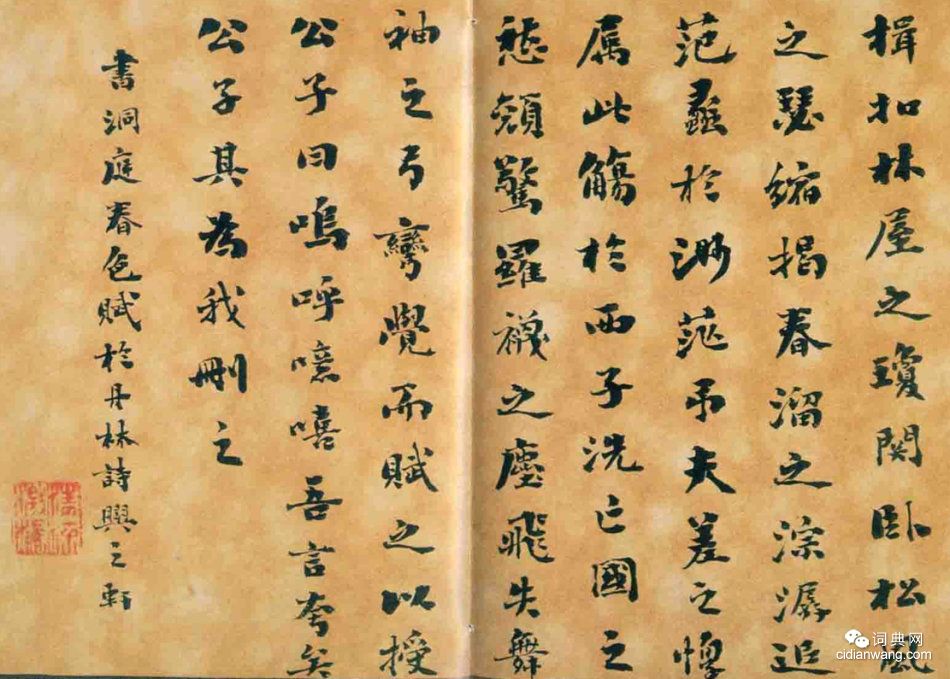 揖扣林屋之瓊関臥松風
之瑟縮揭春溜之淙潺追
范蠡於渺茫弔夫差之惸
属此觴於西子洗亡國之
愁顏驚羅襪之塵飛失舞
袖之弓彎覺而賦之以授
公子曰嗚呼噫嘻吾言夸矣
公子其為我刪之
書洞庭春色賦於丹林詩興之軒
词典网
cidianwang.com